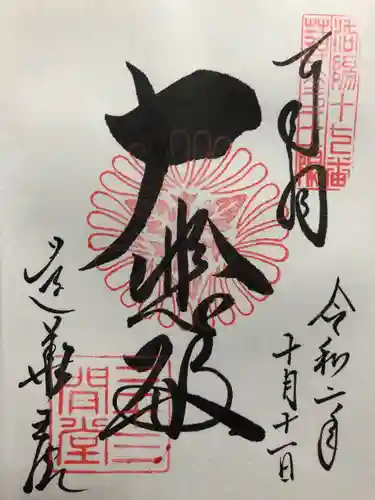 奉拝
洛陽十七番
大悲殿
令和二年
十月十一日
蓮華王院
三十三
間堂